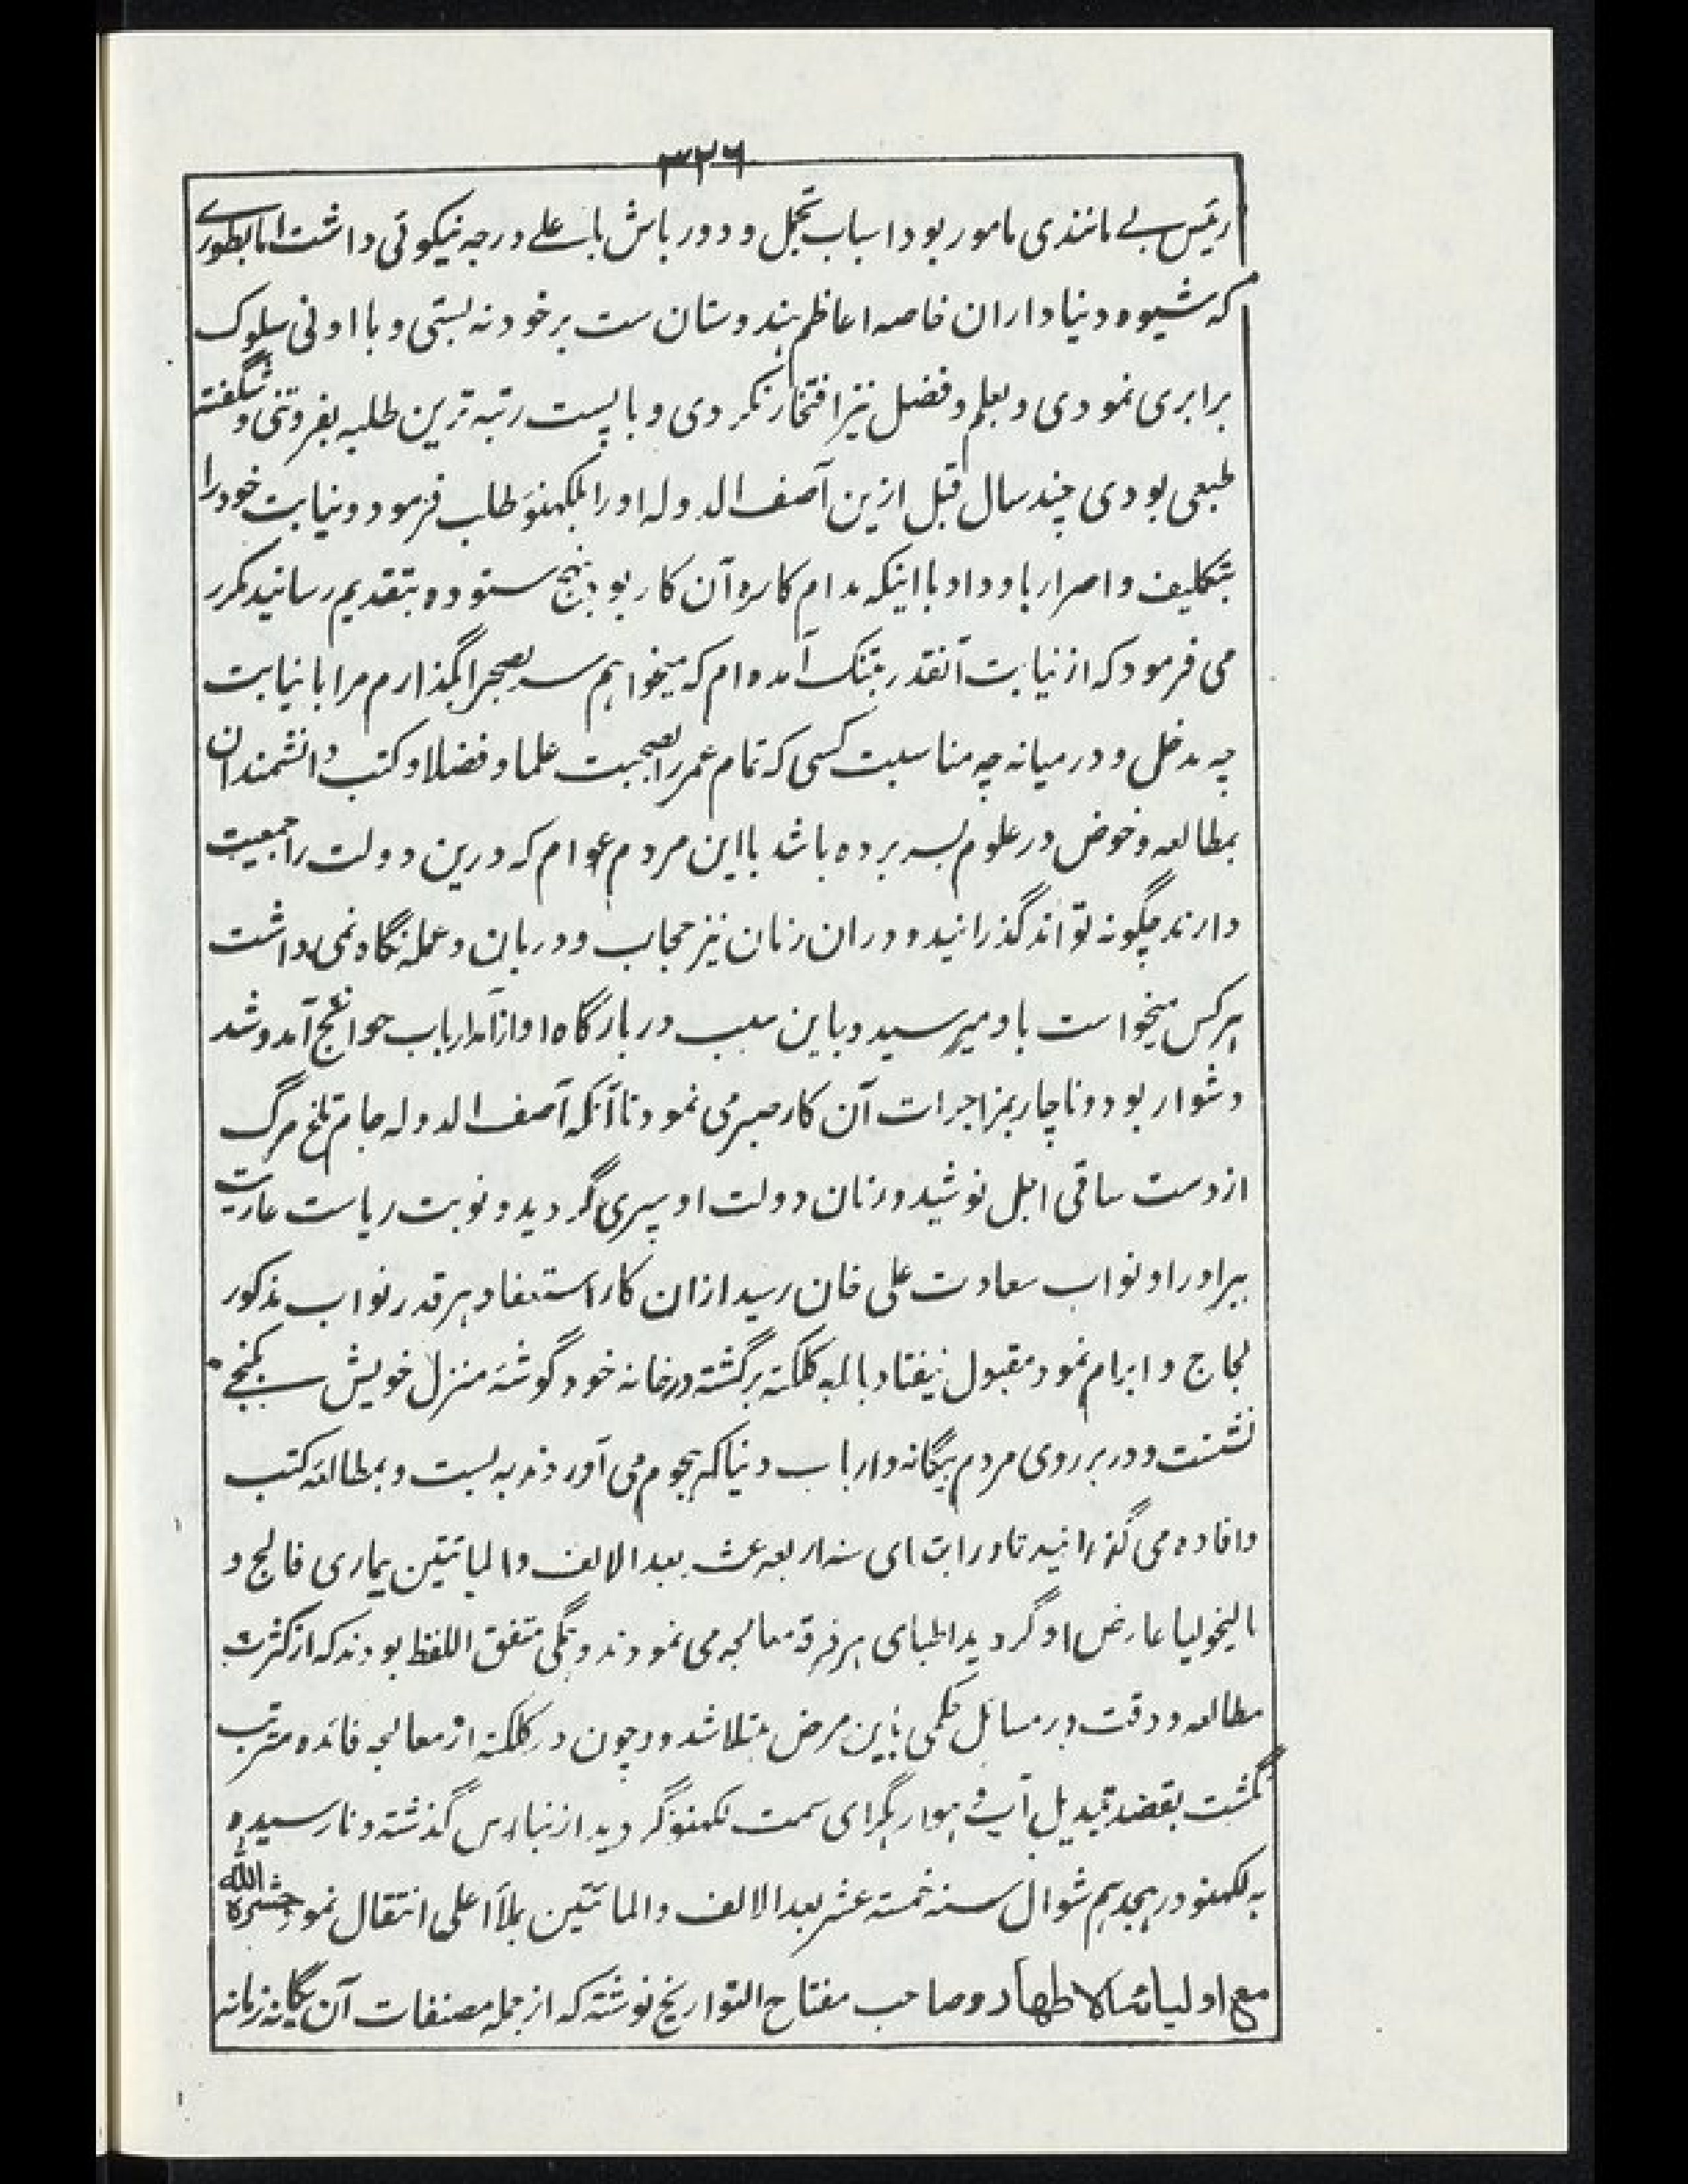 ۳۲۶
رئیس بے مانندی مامور بود اسباب تجمل و دور باش باعلے درجه نیکوئی داشت اما بطورے
که شیوه دنیاداران خاصه اعاظم هندوستان ست برخود نه بستی و با ادنی سلوک
برابری نمودی و بعلم و فضل نیز افتخار نکردی و با پست رتبه ترین طلبه بفروتنی و شگفته
طبعی بودی چند سال قبل ازین آصف الدوله او را بلکهنؤ طلب فرمود و نیابت خود را
بتکلیف و اصرار باو داد با اینکه مدام کاره آن کار بود بنهج ستوده بتقدیم رسانید مکرر
می فرمود که از نیابت آنقدر بتنک آمده ام که میخواهم سر بصحرا گذارم مرا با نیابت
چه مدخل و درمیانه چه مناسبت کسی که تمام عمر را بصحبت علما و فضلا و کتب دانشمندان
بمطالعه و خوض در علوم بسر برده باشد با این مردم عوام که درین دولت را جمعیت
دارند چگونه تواند گذرانید و دران زمان نیز حجاب و دربان و عمله نگاه نمی داشت
هر کس میخواست باو میرسید و باین سبب در بارگاه او از آمد ارباب حوائج آمد و شد
دشوار بود و ناچار بمزاجرات آن کار صبر می نمود تا آنکه آصف الدوله جام تلخ مرگ
از دست ساقی اجل نوشید و زمان دولت او سپری گردید و نوبت ریاست عاریت
ببرادر او نواب سعادت علی خان رسید ازان کار استعفا و هر قدر نواب مذکور
لجاج و ابرام نمود مقبول نیفتاد بالمه کلکته برگشته درخانه خود گوشهٔ منزل خویش بکنجے
نشست و در بر روی مردم بیگانه و ارباب دنیا که هجوم می آوردند به بست و بمطالعهٔ کتب
و افاده می گذرانید تا در اثنای سنه اربعه عشر بعد الالف والمائتین بیماری فالج و
مالیخولیا عارض او گردید اطبای هر فرقه معالجه می نمودند و همگی متفق اللفظ بودند که از کثرت
مطالعه و دقت در مسائل حکمی باین مرض مبتلا شد و چون در کلکته از معالجه فائده مترتب
نگشت بقصد تبدیل آب و هوا رهگرای سمت لکهنؤ گردید از بنارس گذشته و نارسیده
به لکهنؤ در هیجدهم شوال سنه خمسة عشر بعد الالف والمائتین بملأ اعلی انتقال نمود حشره الله
مع اولیائه الاطهار و صاحب مفتاح التواریخ نوشته که از جمله مصنفات آن یگانه زمانه